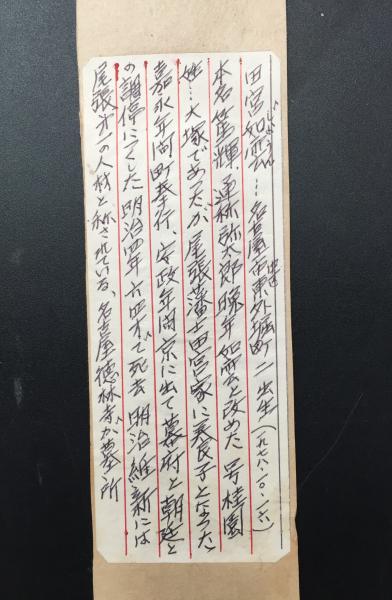 田宮如雲…名古屋市中区東外堀町ニ出生(一九七八・一〇・一六)
じようん
本名篤輝、通称弥太郎晩年如雲と改めた号桂園
姓…大塚であったが尾張藩士田宮家に養子となった
嘉永年間町奉行、安政年間京に出て幕府と朝廷と
の調停につくした明治四年六四才で死去明治維新には
尾張才一の人材と称されている、名古屋徳林寺が墓所